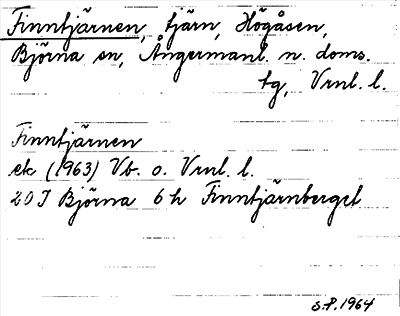 Finntjärnen, tjärn, Högåsen,
Björna sn, Ångermanl. n. doms.
tg, Vrnl. l.
Finntjärnen
ek (1963) Vb. o. Vrnl. l.
20 J Björna 6 h Finntjärnberget
S.P. 1964